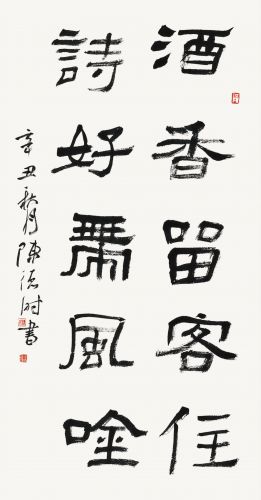 酒香留客住
詩好帶風唫
辛丑秋月陳德时書